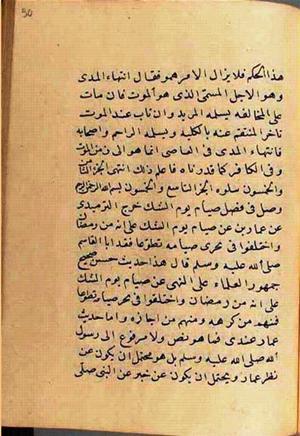 50
هذا الحكم فلا يزال الامر همو فقال انتهاء المدى
وهو الاجل المسمى الذى هو الموت فان مات
على المخالفة يسله المريد وان تاب عند الموت
تاخر المنتقم عنه بالكلية ويسله الراحم واصحابه
فانتهاء المدى فى العاصى انما هو الى زمن الموت
وفى الكافر كما قدرناه فاعلم ذلك انتهى الجزء الثامن
والخمسون يتلوه الجزء التاسع والخمسون بسم الله الرحمن الرحيم
وصل فى فضل صيام يوم الشك خرج الترمذى
عن عمار بن عن صيام يوم الشك على انه من رمضان
واختلفوا فى تحرى صيامه تطوعا فقد ابا القاسم
صلى الله عليه وسلم قال هذا حديث حسن صحيح
جمهور العلماء على النهى عن صيام يوم الشك
على انه من رمضان واختلفوا فى تحر صيامه تطوعا
فمنهم من كرهه ومنهم من اجازه واما حديث
عمار عندى فما هو نص ولا مرفوع الى رسول
الله صلى الله عليه وسلم بل هو محتمل ان يكون عن
نظر عمار ويحتمل ان يكون عن خبر عن النبى صلى